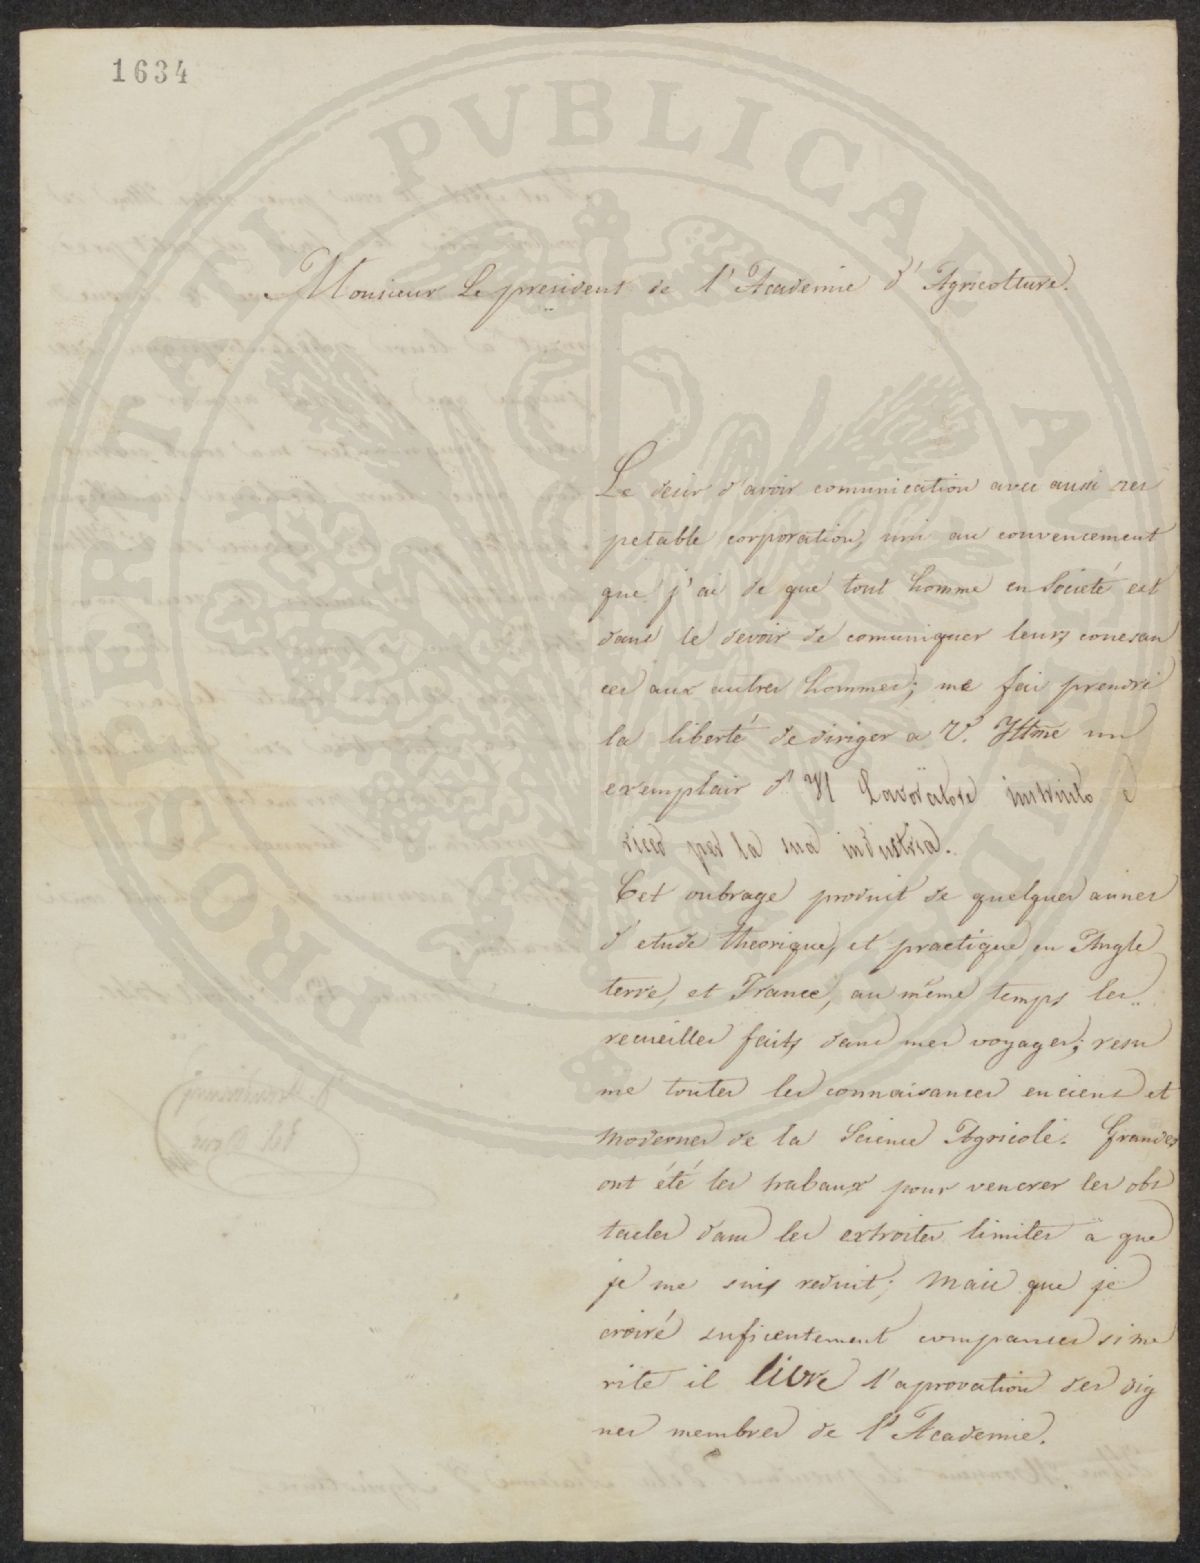 1634
PROSPERITATI PUBLICAE AUGENDAE
Monsieur Le president de l'Academie d'Agricolture.
Le desir d'avoir comunication avec aussi res
petable corporation, uni au convencement
que j'ai de que tout homme en Societé est
dans le devoir de comuniquer leurs conesan
ces aux autres hommes; me fai prendre
la liberté de diriger a V. Illme un
exemplair d' Il Lavoratore instruito e
ricco per la sua industria.
Cet oubrage produit de quelques annes
d'etude theorique, et practique en Angle
terre, et France, au même temps les
recueilles faits dans mes voyages; resu
me toutes les connaisances enciens et
modernes de la Science Agricole. Grandes
ont été les trabaux pour vencrer les obs
tacles dans les extroites limites a que
je me suis reduit; mais que je
croiré suficentement compances si me
rite il livre l'aprovation des dig
nes membres de l'Academie.